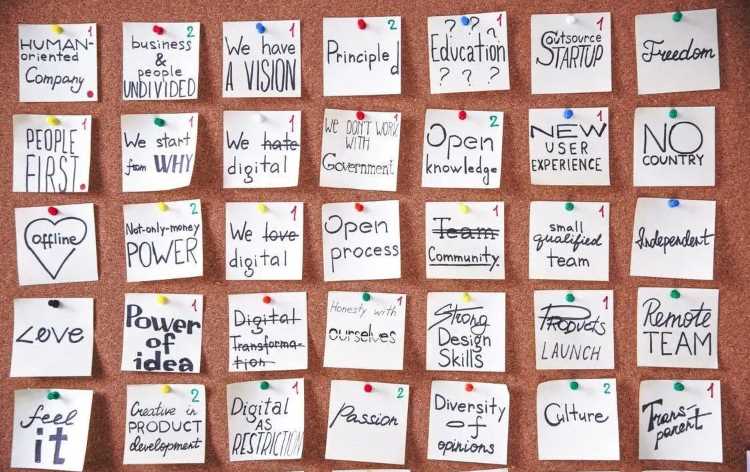 HUMAN-
oriented
Company
1
business
&
people
UNDIVIDED
2
We have
A VISION
1
Principled
2
? ? ?
Education
? ? ?
1
Outsource
STARTUP
1
Freedom
PEOPLE
FIRST
1
We start
from WHY
2
We hate
digital
1
We DON'T WORK
WITH
Government
1
Open
knowledge
2
NEW
USER
EXPERIENCE
1
NO
COUNTRY
offline
Not-only-money
POWER
2
We love
digital
1
Open
process
Team
Community
1
small
qualified
team
1
Independent
Love
Power
of
idea
1
Digital
Transforma-
tion
1
Honesty with
ourselves
1
Strong
Design
Skills
Products
LAUNCH
1
Remote
TEAM
feel
it
Creative in
PRODUCT
development
2
Digital
As
RESTRICTION
1
Passion
2
Diversity
of
opinions
Culture
2
Trans-
parent
1